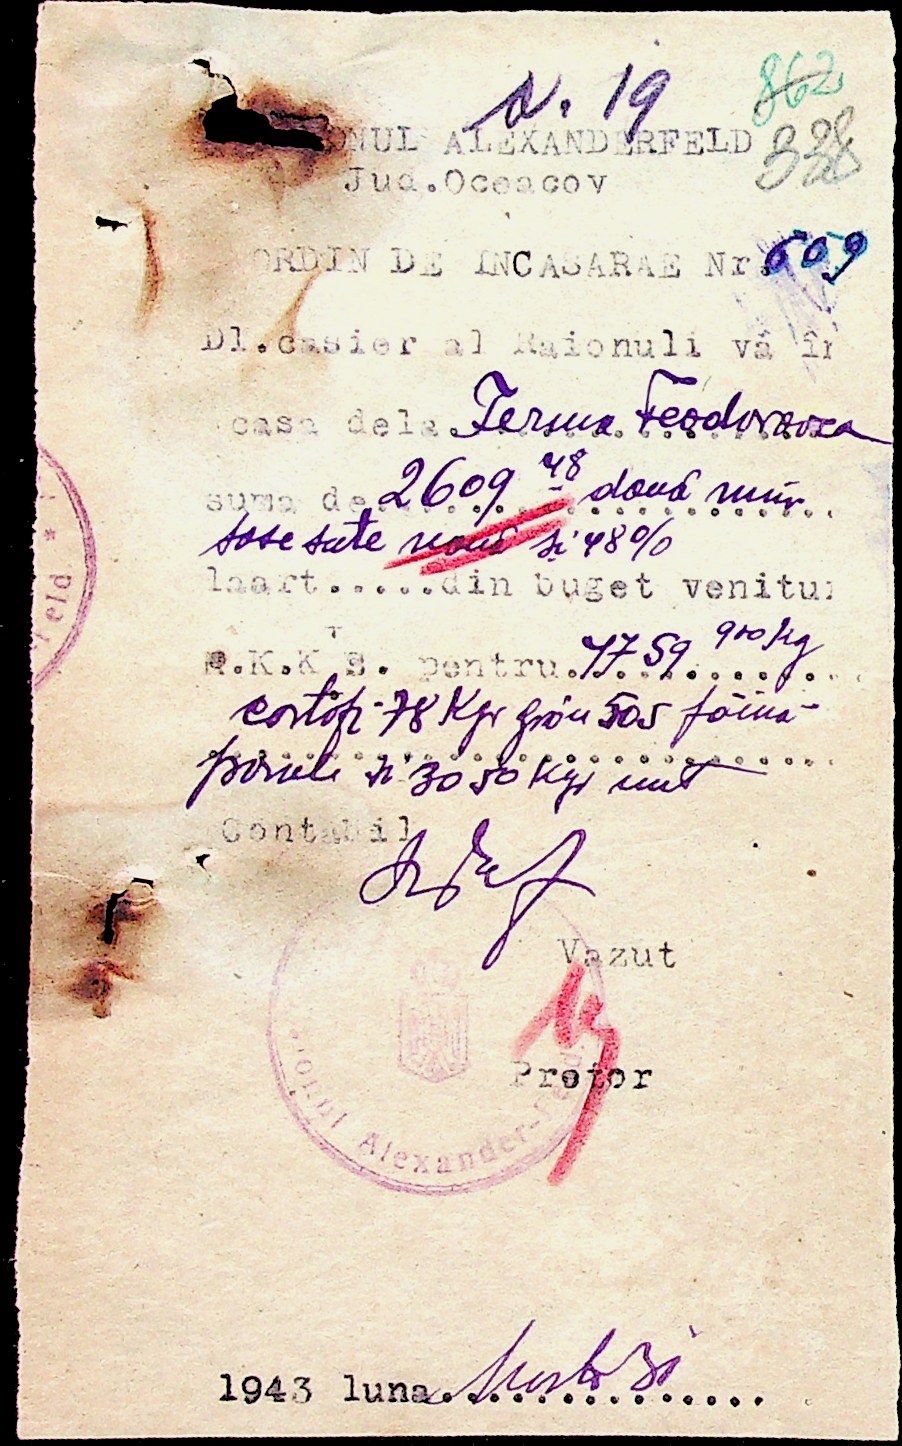 N. 19
862
338
ONUL ALEXANDERFELD
Jud.Oceacov
ORDIN DE INCASARAE Nr. 609
Dl.casier al Raionuli vă în
casa dela Ferma Feodorovca
suma de 2609 48 două mii
sase sute nouă si 48%
laart.....din buget venitu
pentru 4759 900 kg
cartofi 78 Kgr grâu 505 făină
si 3050 Kgr unt
Contabil
Vazut
Pretor
Alexander-Feld
eld *
1943 luna